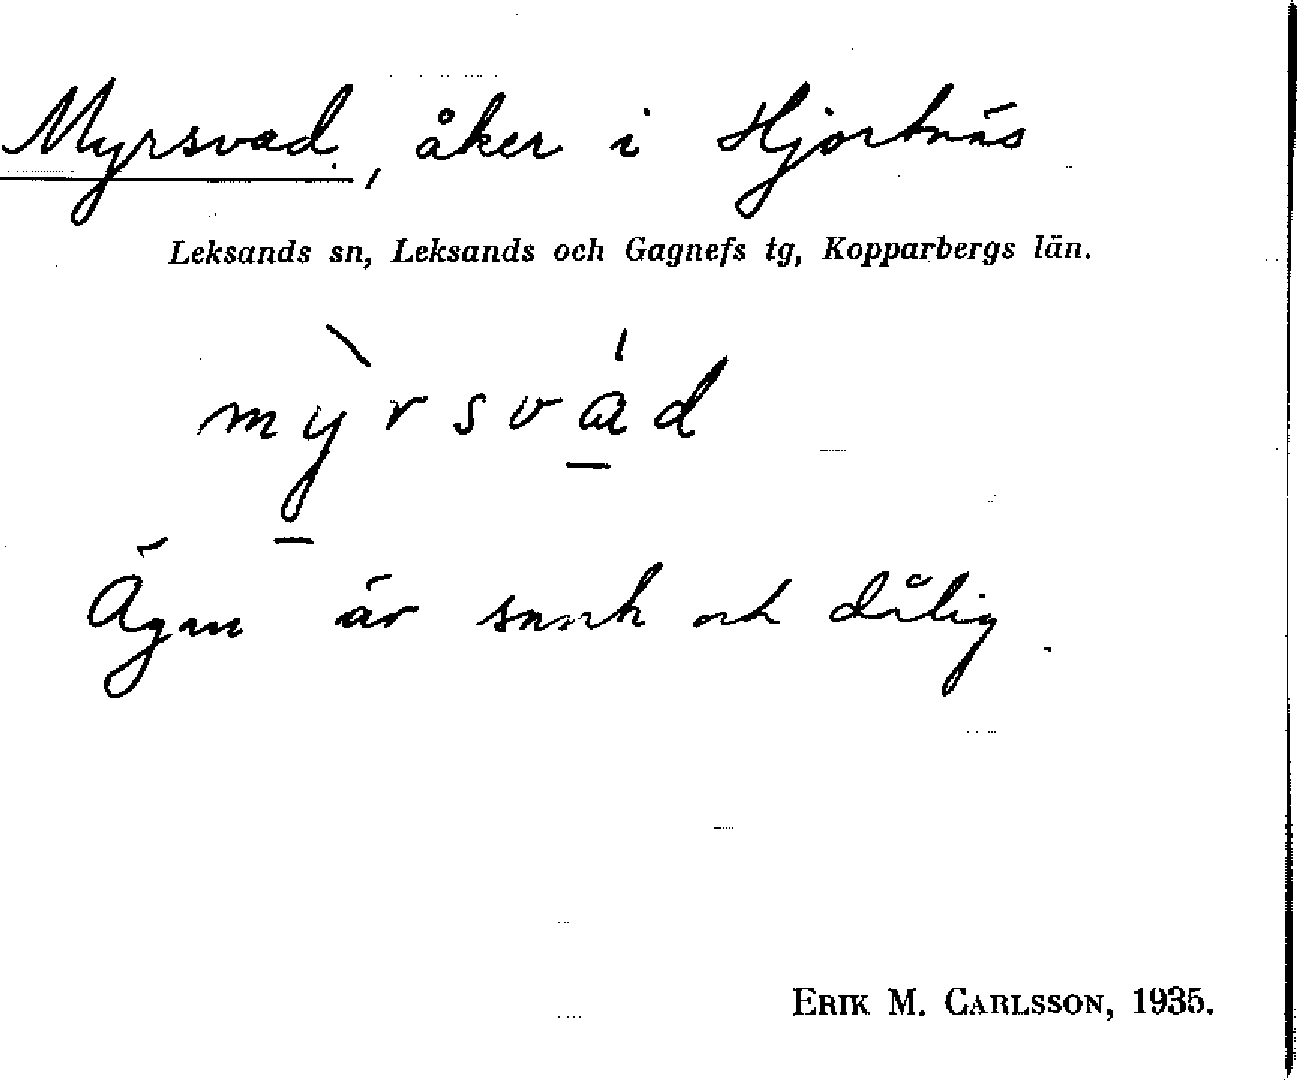 Myrsvad, åker i Hjortnäs
Leksands sn, Leksands och Gagnefs tg, Kopparbergs län.
mỳ̠rsvá̠d
Ägan är sank och dålig.
ERIK M. CARLSSON, 1935.